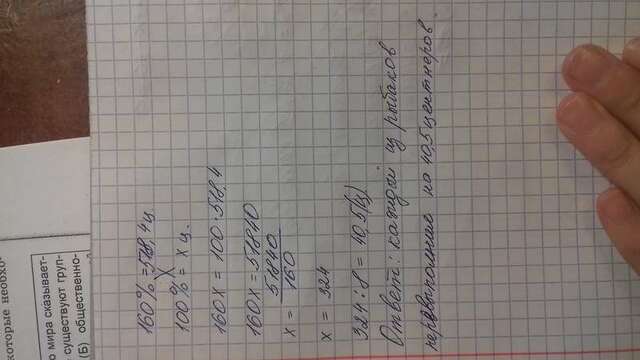 которые необхо-
о мира сказывает-
существуют груп-
(Б) общественно-
160% = 518,4 ц.
100% = х ц.
160х = 100·518,4
160х = 51840
х = 51840/160
х = 324
324 : 8 = 40,5(ц)
Ответ: каждый из рыбаков
перевыполнил на 40,5 центнеров.